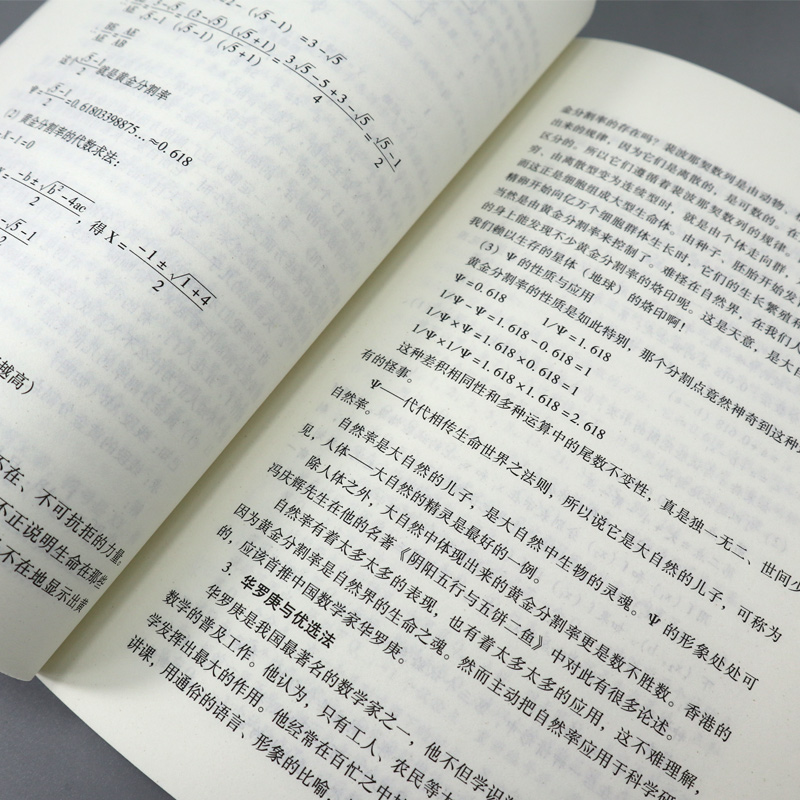 2- (√5-1) =3-√5
3-√5 (3-√5) (√5+1) 3√5-5+3-√5 √5-1
√5-1 (√5-1) (√5+1) 4 2
这 √5-1 就是黄金分割率
2
Ψ= √5-1 =0.61803398875…≈0.618
2
(2) 黄金分割率的代数求法：
-X-1=0
-b±√b²-4ac ，得 X= -1±√1+4
2 2
-√5-1
2
越高）
不在、不可抗拒的力量。
不正说明生命在那些
不在地显示出黄
金分割率的存在吗？裴波那契数列是由动物、
出来的规律，因为它们是离散的，是可数的。在
区分的。所以它们遵循着裴波那契数列的规律。
穷，由离散型变为连续型时，就是由个体走向群，
而这正是细胞组成大型生命体。由种子，胚胎开始发
精卵开始向亿万个细胞群体生长时，它们的生长繁殖和
当然是由黄金分割率来控制了。难怪在自然界，在我们人
的身上能发现不少黄金分割率的烙印呢。这是天意，是大自
我们赖以生存的星体（地球）的烙印啊！
(3) Ψ 的性质与应用
黄金分割率的性质是如此特别，那个分割点竟然神奇到这种
Ψ=0.618 1/Ψ=1.618
1/Ψ-Ψ=1.618-0.618=1
1/Ψ×Ψ=1.618×0.618=1
1/Ψ×1/Ψ=1.618×1.618=2.618
这种差积相同性和多种运算中的尾数不变性，真是独一无二、世间少
有的怪事。
Ψ——代代相传生命世界之法则，所以说它是大自然的儿子，可称为
自然率。
自然率是大自然的儿子，是大自然中生物的灵魂。Ψ 的形象处处可
见，人体——大自然的精灵是最好的一例。
除人体之外，大自然中体现出来的黄金分割率更是数不胜数。香港的
冯庆辉先生在他的名著《阴阳五行与五饼二鱼》中对此有很多论述。
自然率有着太多太多的表现，也有着太多太多的应用，这不难理解，
因为黄金分割率是自然界的生命之魂。然而主动把自然率应用于科学研
的，应该首推中国数学家华罗庚。
3．华罗庚与优选法
华罗庚是我国最著名的数学家之一，他不但学识
数学的普及工作。他认为，只有工人、农民等
学发挥出最大的作用。他经常在百忙之中
讲课，用通俗的语言、形象的比喻，